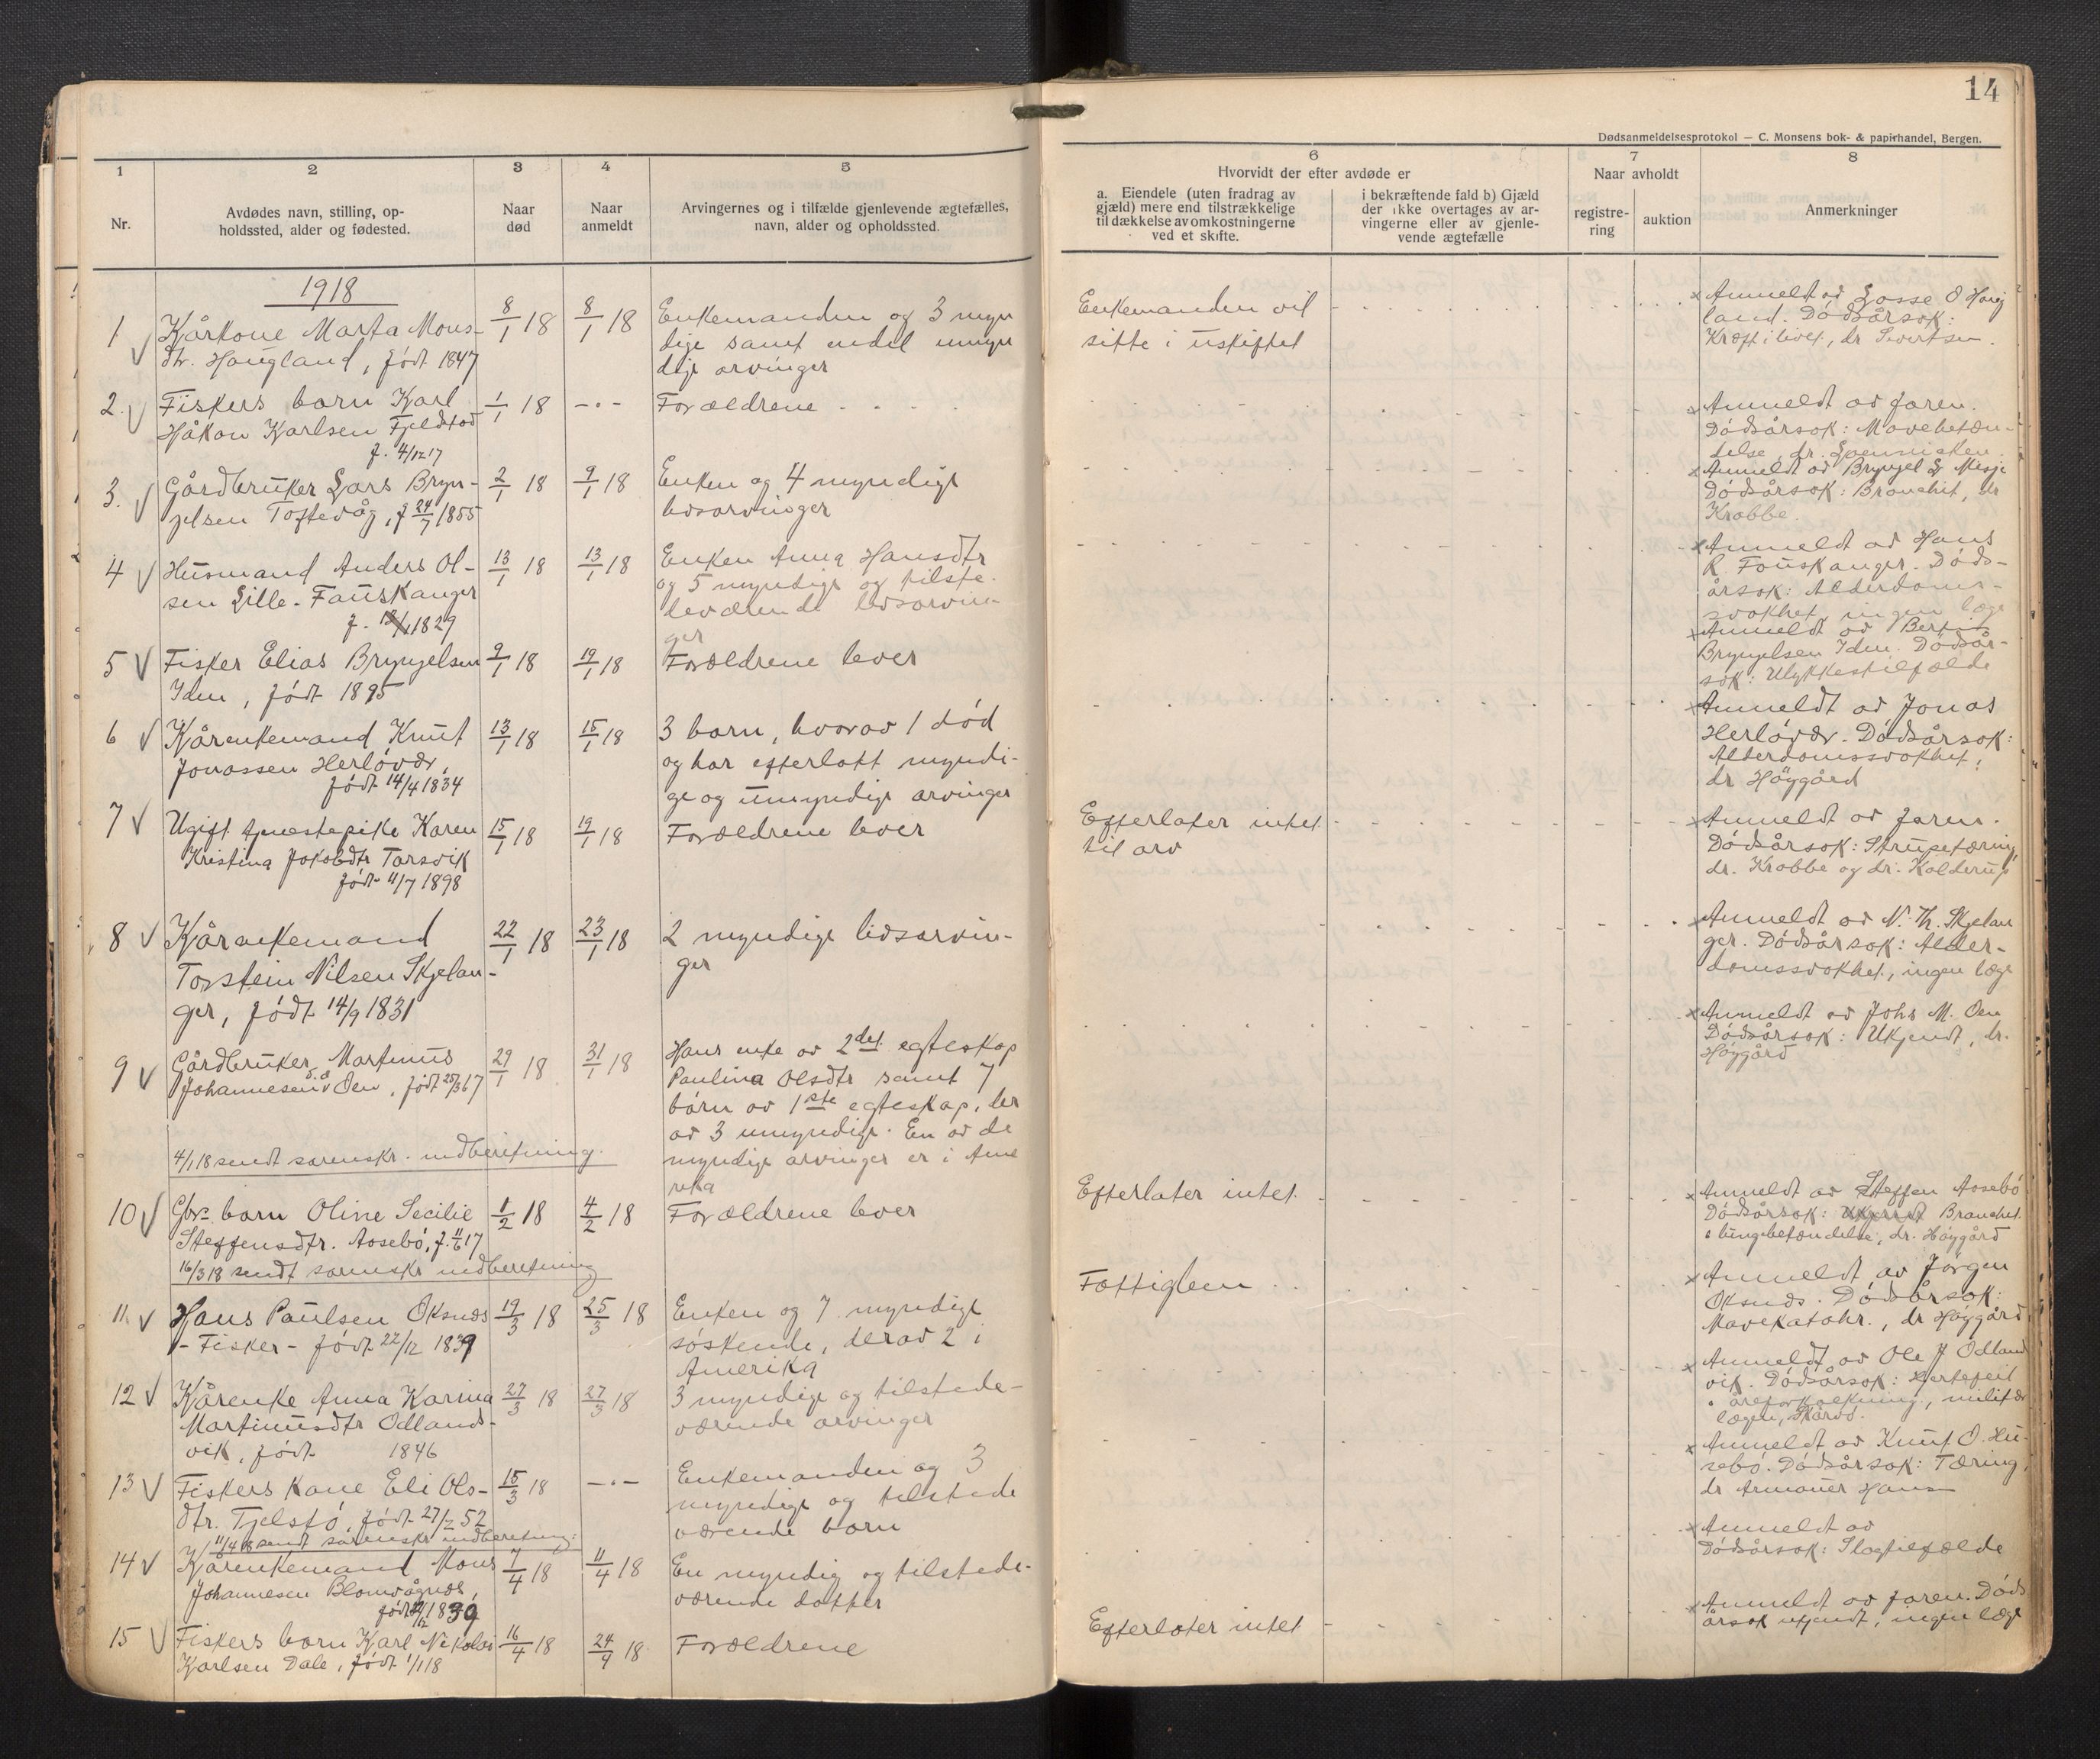 14
Dødsanmeldelsesprotokol — C. Monsens bok- & papirhandel, Bergen.
1
Nr.
2
Avdødes navn, stilling, op-
holdssted, alder og fødested.
3
Naar
død
4
Naar
anmeldt
5
Arvingernes og i tilfælde gjenlevende ægtefælles,
navn, alder og opholdssted.
6
Hvorvidt der efter avdøde er
a. Eiendele (uten fradrag av
gjæld) mere end tilstrækkelige
til dækkelse av omkostningerne
ved et skifte.
i bekræftende fald b) Gjæld
der ikke overtages av ar-
vingerne eller av gjenle-
vende ægtefælle
7
Naar avholdt
registre-
ring
auktion
8
Anmerkninger
1918
1 Kårkone Marta Mons-
dtr. Haugland, født 1847
8/1 18
8/1 18
Enkemanden og 3 myn
dige samt endel umyn
dige arvinger
Enkemanden vil
sitte i uskiftet
Anmeldt av Lasse O Haug
land. Dødsårsok:
Kræft i livet, dr Sivertsen.
2. Fiskers barn Karl
Håkon Karlsen Fjeldstad
f. 4/12 17
1/1 18
-·-
Forældrene
Anmeldt av faren.
Dødsårsok: Mavebetæn-
delse, dr.
3. Gårdbruker Lars Bryn-
jelsen Toftevåg, f 24/7 1855
2/1 18
9/1 18
Enken og 4 myndige
livsarvinger
Anmeldt av Brynjel L Misje
Dødsårsok: Bronchit, dr
Krabbe.
4 Husmand Anders Ol-
sen Lille-Fauskanger
f. 1829
13/1 18
13/1 18
Enken Anna Hansdtr
og 5 myndige og tilste-
deværende livsarvin-
ger
Anmeldt av Hans
R. Fauskanger. Døds-
årsok: Alderdoms-
svakhet, ingen læge
5 Fisker Elias Brynjelsen
Iden, født 1895
9/1 18
19/1 18
Forældrene lever
Anmeldt av Bertin
Brynjelsen Iden. Dødsår-
sok: Ulykkestilfælde
6 Kårenkemand Knut
Jonassen Herløvær,
født 14/4 1834
13/1 18
15/1 18
3 barn, hvorav 1 død
og har efterlatt myndi-
ge og umyndige arvinger
Anmeldt av Jonas
Herløvær. Dødsårsok:
Alderdomssvakhet,
dr Høygård
7 Ugift tjenestepike Karen
Kristina Jakobdtr Tarsvik
født 11/7 1898
15/1 18
19/1 18
Forældrene lever
Efterlater intet
til arv
Anmeldt av faren.
Dødsårsok: Strupetæring,
dr. Krabbe og dr. Kalderup
8 Kårenkemand
Torstein Nilsen Skjelan-
ger, født 14/9 1831
22/1 18
23/1 18
2 myndige livsarvin-
ger
Anmeldt av N. Th. Skjelan
ger. Dødsårsok: Alder-
domssvakhet, ingen læge
9 Gårdbruker Martinus
Johannesen d.å. Oen, født 25/3 67
29/1 18
31/1 18
Hans enke av 2det egteskap
Paulina Olsdtr samt 7
børn av 1ste egteskap, der
av 3 umyndige. En av de
myndige arvinger er i Ame
rika
Anmeldt av Johs M. Oen
Dødsårsok: Ukjendt, dr.
Høygård
4/1 18 sendt sorenskr. indberetning.
10 Gbr. barn Oline Secilie
Steffensdtr. Åsebø, f. 11/6 17
1/2 18
4/2 18
Forældrene lever
Efterlater intet
Anmeldt av Steffen Aasebø
Dødsårsok: Bronchit.
i lungebetændelse, dr. Høygård
16/3 18 sendt sorenskr indberetning
11. Hans Paulsen Oksnes
- Fisker - født 22/12 1839
19/3 18
25/3 18
Enken og 7 myndige
søskende, derav 2 i
Amerika
Fattiglem
Anmeldt av Jørgen
Oksnes. Dødsårsok:
Mavekatahr., dr Høygård
12 Kårenke Anna Karina
Martinusdtr Odlands-
vik, født 1846
27/3 18
27/3 18
3 myndige og tilstede-
værende arvinger
Anmeldt av Ole J Odland
vik. Dødsårsok: Hjertefeil
åreforkalkning, militær
lægen, Skårvø.
13 Fiskers kone Eli Ols-
dtr. Tjelstø, født 27/2 52
15/3 18
-·-
Enkemanden og 3
myndige og tilstede
værende barn
Anmeldt av Knut O. Hu-
sebø. Dødsårsok: Tæring,
dr Armauer Hansen
11/4 18 sendt sorenskr indberetning:
14 Kårenkemand Mons
Johannesen Blomvågnes,
født 1839
7/4 18
11/4 18
En myndig og tilstede-
værende datter
Anmeldt av
Dødsårsok: Slagtilfælde
15 Fiskers barn Karl Nikolai
Karlsen Dale, født 1/1 18
16/4 18
24/9 18
Forældrene
Efterlater intet
Anmeldt av faren. Døds
årsok ukjendt, ingen læge